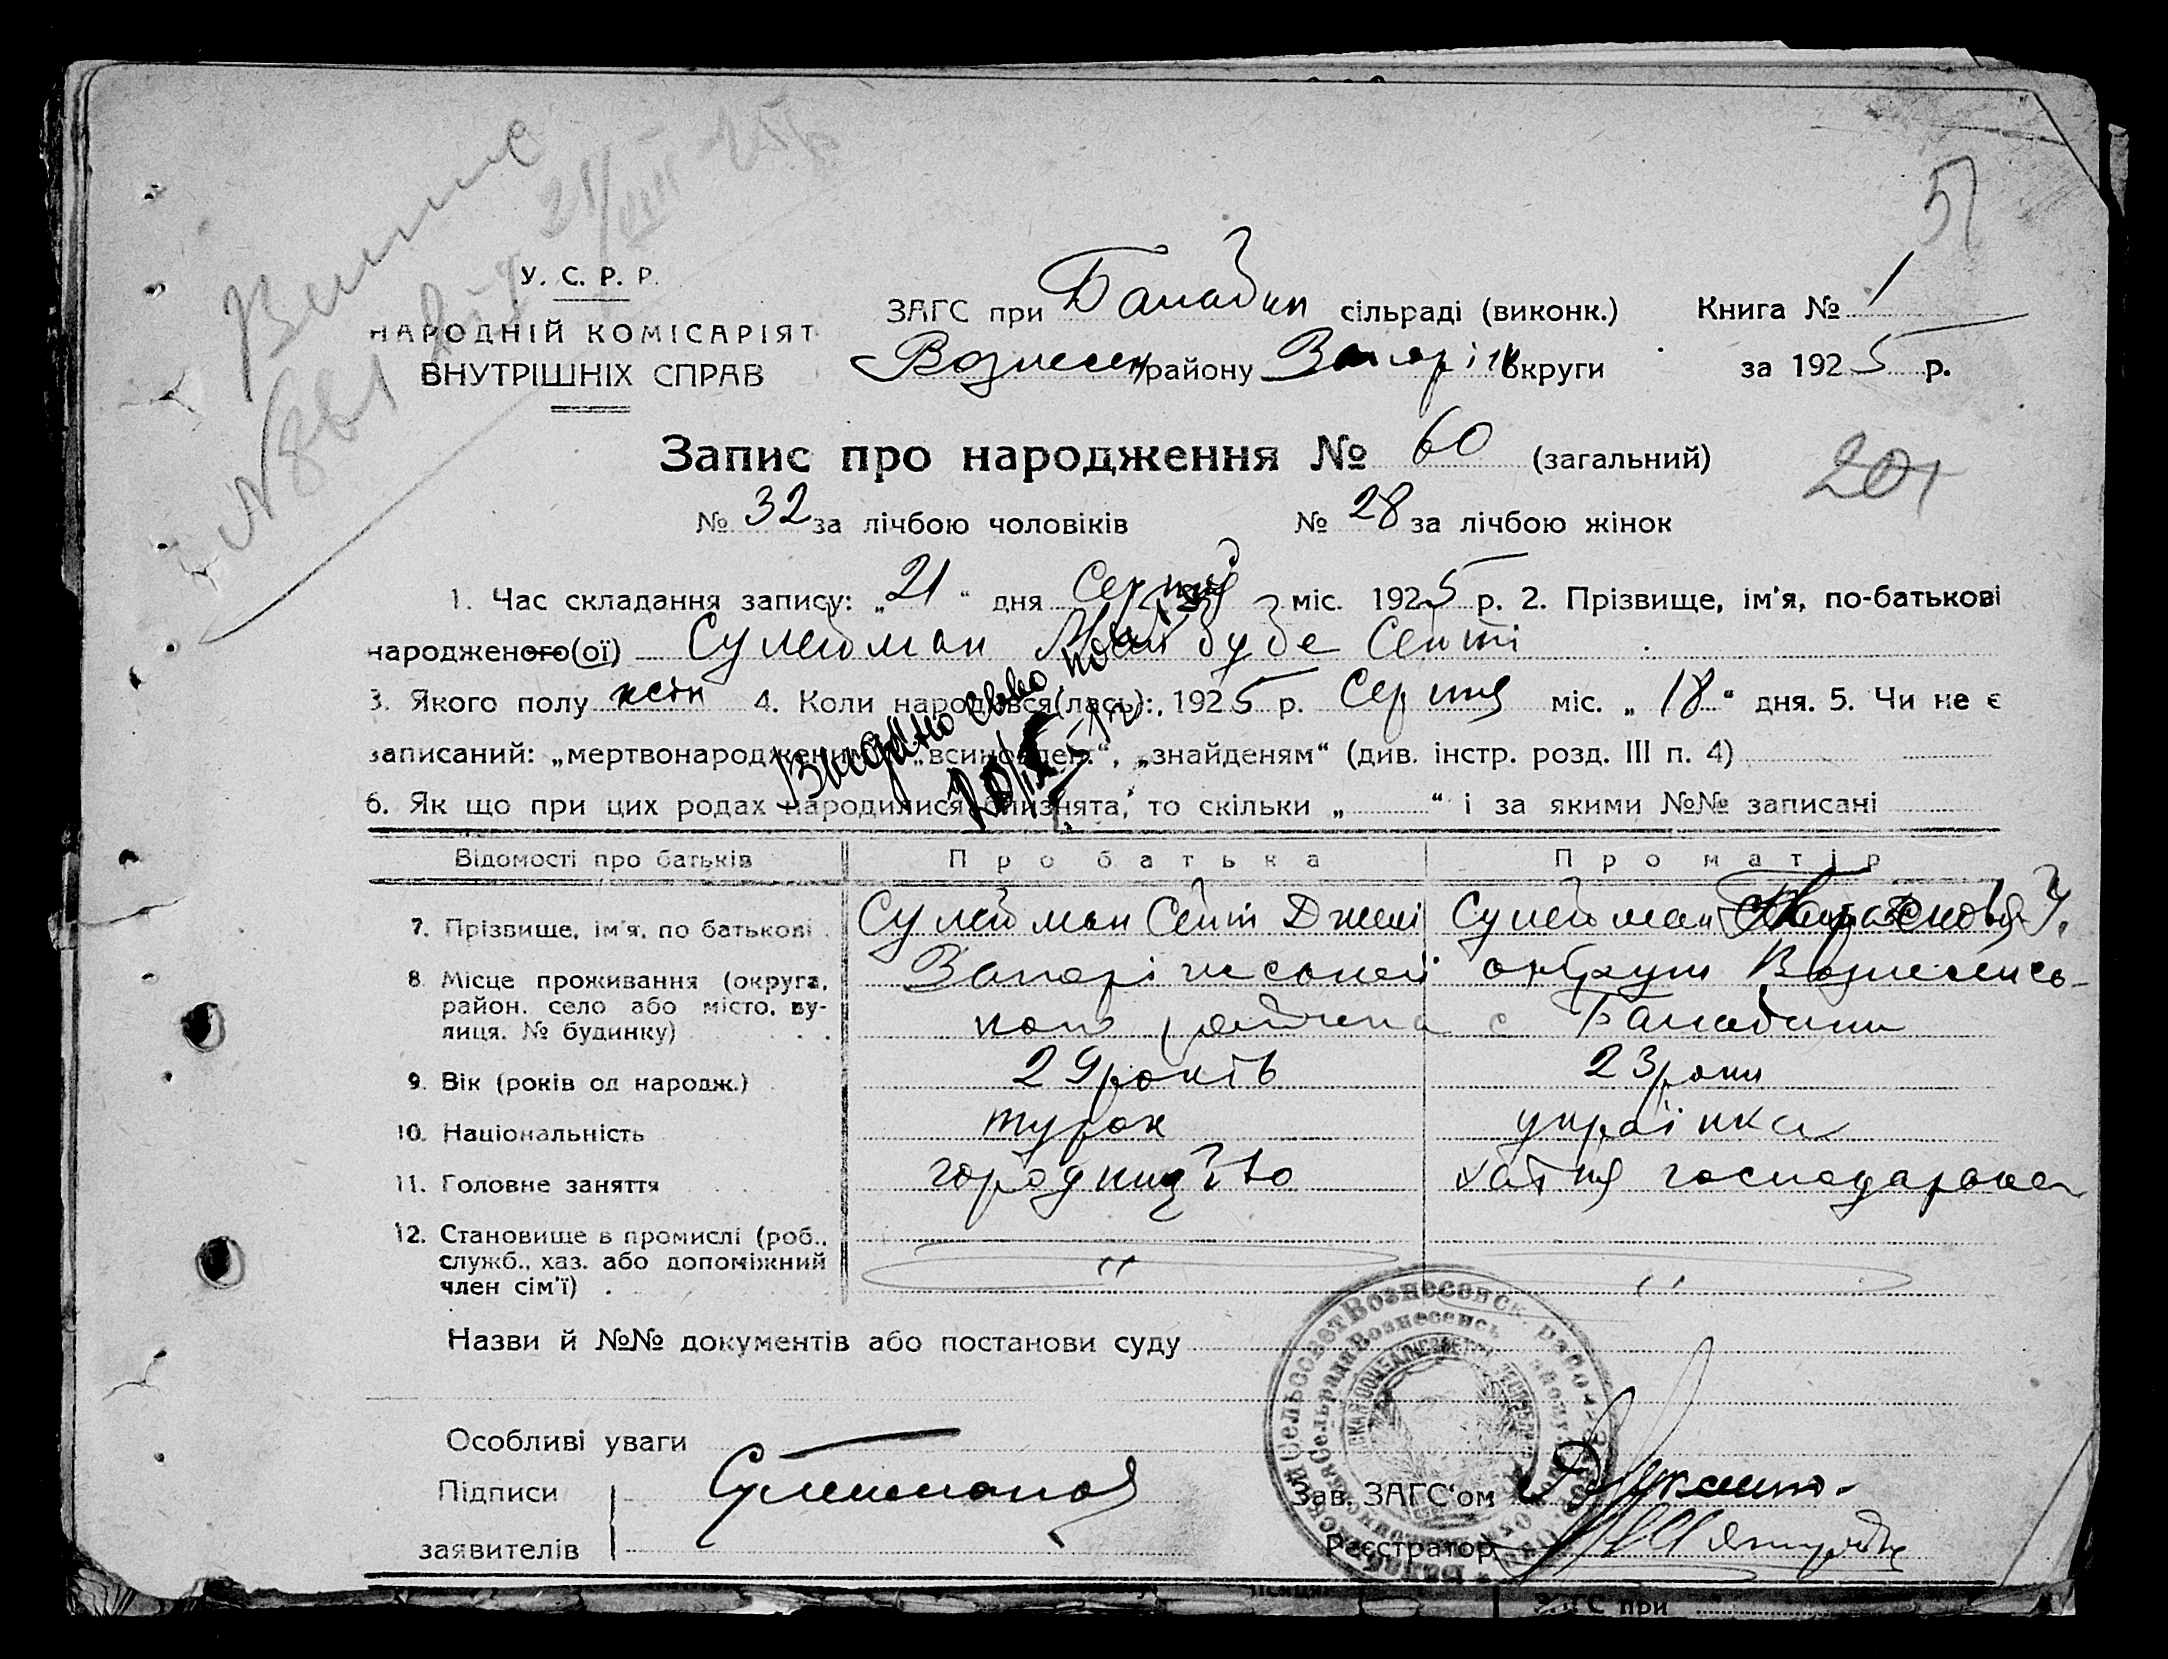 51
У. С. Р. Р.
НАРОДНІЙ КОМІСАРІЯТ
ВНУТРІШНІХ СПРАВ
ЗАГС при Балабин сільраді (виконк.) Книга № 1
Вознесен району Запоріж округи за 1925 р.
Запис про народження № 60 (загальний)
201
№ 32 за лічбою чоловіків № 28 за лічбою жінок
1. Час складання запису: „21“ дня Серпня міс. 1925 р. 2. Прізвище, ім'я, по-батькові
народженого(ої) Сулейман Сеит
3. Якого полу жін 4. Коли народився(лась): 1925 р. Серпня міс. „18“ дня. 5. Чи не є
записаний: „мертвонародженим“, „всиновлен.“, „знайденям“ (див. інстр. розд. III п. 4)
6. Як що при цих родах народилися близнята, то скільки „ “ і за якими №№ записані
Відомості про батьків Про батька Про матір
7. Прізвище, ім'я, по батькові Сулейман Сеит Джелі Сулейман
8. Місце проживання (округа, район, село або місто, вулиця, № будинку) Запоріжської округи Вознесенсь-
кого района с Балабини
9. Вік (років од народж.) 29 років 23 роки
10. Національність турок українка
11. Головне заняття городництво хатня господарка
12. Становище в промислі (роб., служб., хаз. або допоміжний член сім'ї) " "
Назви й №№ документів або постанови суду
Особливі уваги
Підписи
заявителів
Зав. ЗАГС'ом
Реєстратор
ЗАГС при